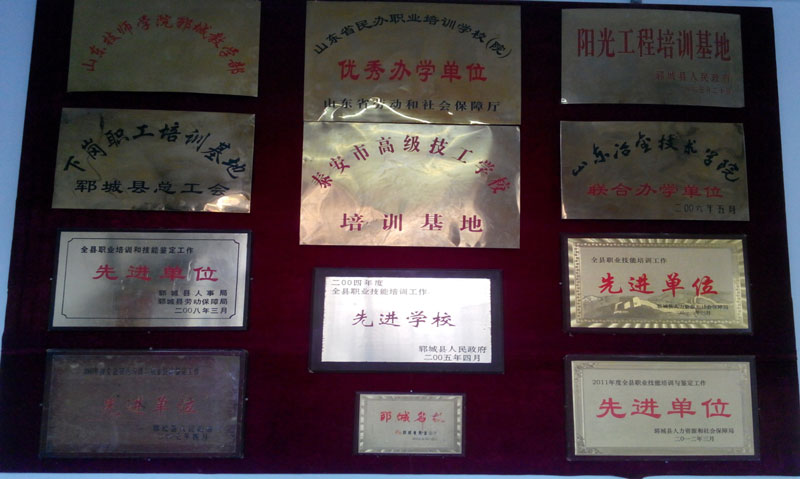 山东技师学院郓城教学部
山东省民办职业培训学校(院)
优秀办学单位
山东省劳动和社会保障厅
阳光工程培训基地
郓城县人民政府
下岗职工培训基地
郓城县总工会
泰安市高级技工学校
培训基地
山东冶金技术学院
联合办学单位
二00九年五月
全县职业培训和技能鉴定工作
先进单位
郓城县人事局
郓城县劳动保障局
二00八年三月
二00四年度
全县职业技能培训工作
先进学校
郓城县人民政府
二00五年四月
全县职业技能培训工作
先进单位
先进单位
郓城名校
2011年度全县职业技能培训与鉴定工作
先进单位
郓城县人力资源和社会保障局
二0一二年三月